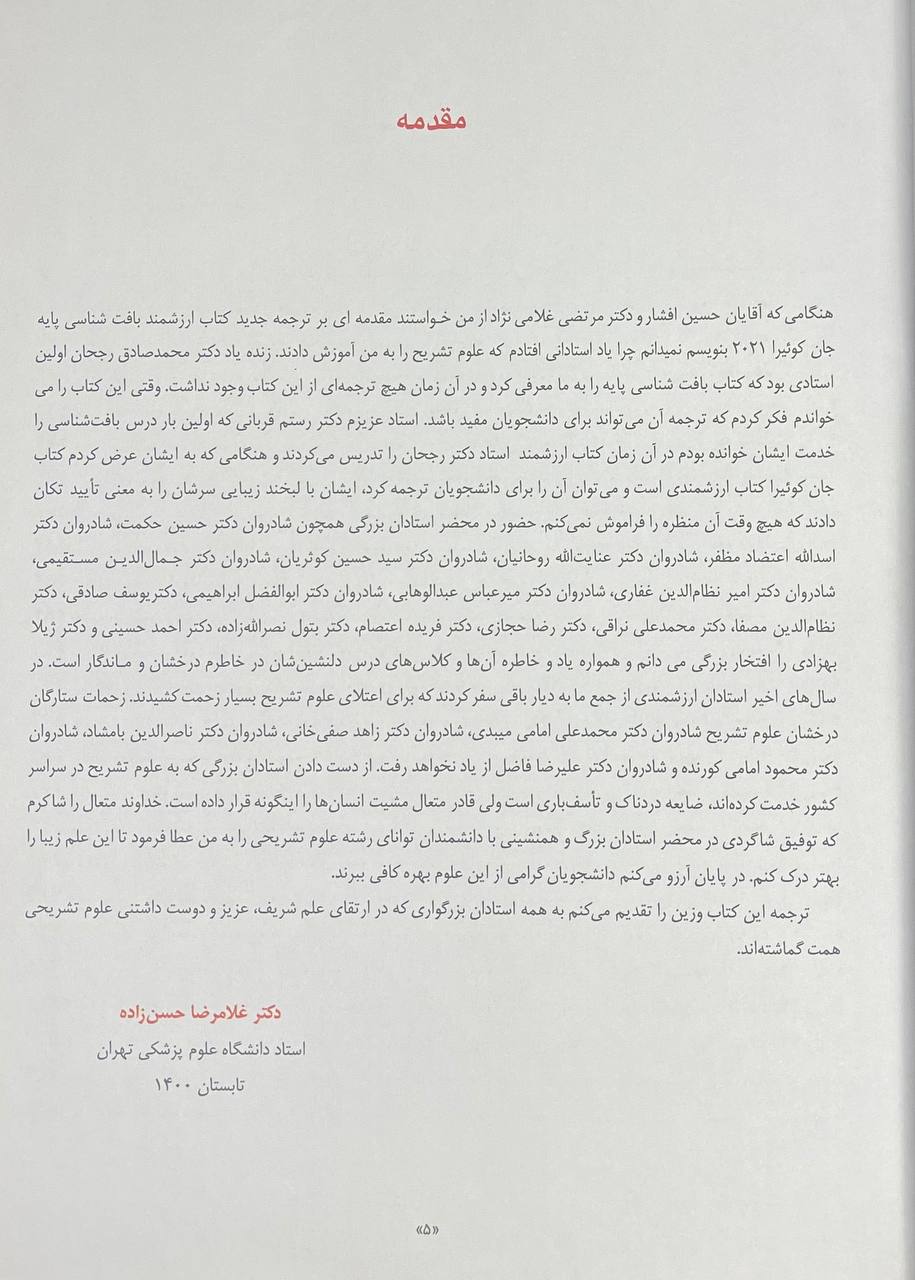 مقدمه
هنگامی که آقایان حسین افشار و دکتر مرتضی غلامی نژاد از من خـواستند مقدمه ای بر ترجمه جدید کتاب ارزشمند بافت شناسی پایه
جان کوئیرا ۲۰۲۱ بنویسم نمیدانم چرا یاد استادانی افتادم که علوم تشریح را به من آموزش دادند. زنده یاد دکتر محمدصادق رجحان اولین
استادی بود که کتاب بافت شناسی پایه را به ما معرفی کرد و در آن زمان هیچ ترجمه‌ای از این کتاب وجود نداشت. وقتی این کتاب را می
خواندم فکر کردم که ترجمه آن می‌تواند برای دانشجویان مفید باشد. استاد عزیزم دکتر رستم قربانی که اولین بار درس بافت‌شناسی را
خدمت ایشان خوانده بودم در آن زمان کتاب ارزشمند استاد دکتر رجحان را تدریس می‌کردند و هنگامی که به ایشان عرض کردم کتاب
جان کوئیرا کتاب ارزشمندی است و می‌توان آن را برای دانشجویان ترجمه کرد، ایشان با لبخند زیبایی سرشان را به معنی تأیید تکان
دادند که هیچ وقت آن منظره را فراموش نمی‌کنم. حضور در محضر استادان بزرگی همچون شادروان دکتر حسین حکمت، شادروان دکتر
اسدالله اعتضاد مظفر، شادروان دکتر عنایت‌الله روحانیان، شادروان دکتر سید حسین کوثریان، شادروان دکتر جـمال‌الدیـن مسـتقیمی،
شادروان دکتر امیر نظام‌الدین غفاری، شادروان دکتر میرعباس عبدالوهابی، شادروان دکتر ابوالفضل ابراهیمی، دکتریوسف صادقی، دکتر
نظام‌الدین مصفا، دکتر محمدعلی نراقی، دکتر رضا حجازی، دکتر فریده اعتصام، دکتر بتول نصرالله‌زاده، دکتر احمد حسینی و دکتر ژیلا
بهزادی را افتخار بزرگی می دانم و همواره یاد و خاطره آن‌ها و کلاس‌های درس دلنشین‌شان در خاطرم درخشان و مـاندگار است. در
سال‌های اخیر استادان ارزشمندی از جمع ما به دیار باقی سفر کردند که برای اعتلای علوم تشریح بسیار زحمت کشیدند. زحمات ستارگان
درخشان علوم تشریح شادروان دکتر محمدعلی امامی میبدی، شادروان دکتر زاهد صفی‌خانی، شادروان دکتر ناصرالدین بامشاد، شادروان
دکتر محمود امامی کورنده و شادروان دکتر علیرضا فاضل از یاد نخواهد رفت. از دست دادن استادان بزرگی که به علوم تشریح در سراسر
کشور خدمت کرده‌اند، ضایعه دردناک و تأسف‌باری است ولی قادر متعال مشیت انسان‌ها را اینگونه قرار داده است. خداوند متعال را شاکرم
که توفیق شاگردی در محضر استادان بزرگ و همنشینی با دانشمندان توانای رشته علوم تشریحی را به من عطا فرمود تا این علم زیبا را
بهتر درک کنم. در پایان آرزو می‌کنم دانشجویان گرامی از این علوم بهره کافی ببرند.
ترجمه این کتاب وزین را تقدیم می‌کنم به همه استادان بزرگواری که در ارتقای علم شریف، عزیز و دوست داشتنی علوم تشریحی
همت گماشته‌اند.
دکتر غلامرضا حسن‌زاده
استاد دانشگاه علوم پزشکی تهران
تابستان ۱۴۰۰
«۵»